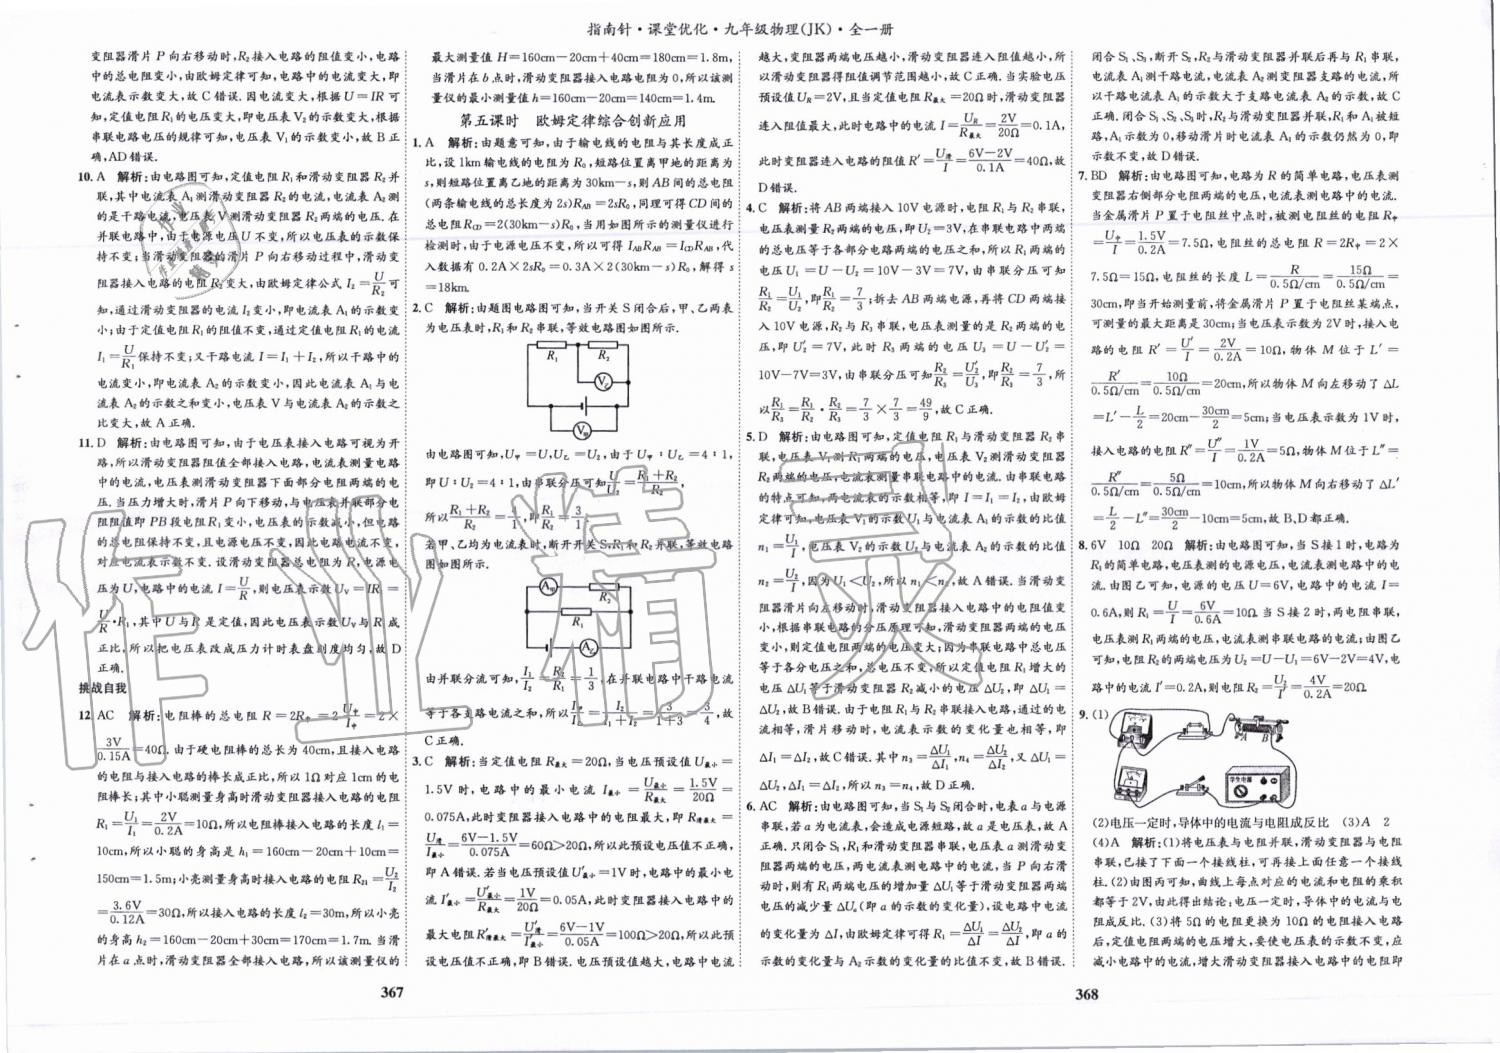 指南针·课堂优化·九年级物理(JK)·全一册
变阻器滑片P向右移动时,R₂接入电路的阻值变小,电路
中的总电阻变小,由欧姆定律可知,电路中的电流变大,即
电流表示数变大,故C错误.因电流变大,根据U=IR可
知,定值电阻R₁的电压变大,即电压表V₂的示数变大,根据
串联电路电压的规律可知,电压表V₁的示数变小,故B正
确,AD错误.
10. A 解析:由电路图可知,定值电阻R₁和滑动变阻器R₂并
联,其中电流表A₁测滑动变阻器R₂的电流,电流表A₂测
的是干路电流,电压表V测滑动变阻器R₂两端的电压.在
并联电路中,由于电源电压U不变,所以电压表的示数保
持不变;当滑动变阻器的滑片P向右移动过程中,滑动变
阻器接入电路的电阻R₂变大,由欧姆定律公式I₂=U/R₂可
知,通过滑动变阻器的电流I₂变小,即电流表A₁的示数变
小;由于定值电阻R₁的阻值不变,通过定值电阻R₁的电流
I₁=U/R₁保持不变;又干路电流I=I₁+I₂,所以干路中的
电流变小,即电流表A₂的示数变小,因此电流表A₁与电
流表A₂的示数之和变小,电压表V与电流表A₂示数之比
变大,故A正确.
11. D 解析:由电路图可知,由于电压表接入电路可视为开
路,所以滑动变阻器阻值全部接入电路,电流表测量电路
中的电流,电压表测滑动变阻器下面部分电阻两端的电
压.当压力增大时,滑片P向下移动,与电压表并联部分电
阻阻值即PB段电阻R₁变小,电压表的示数减小,但电路
的总电阻保持不变,且电源电压不变,因此电路电流不变,
对应电流表示数不变.设滑动变阻器总电阻为R,电源电
压为U,电路中的电流I=U/R,则电压表示数U_V=IR₁=
U/R·R₁,其中U与R是定值,因此电压表示数U_V与R₁成
正比,所以把电压表改成压力计时表盘刻度均匀,故D
正确.
挑战自我
12. AC 解析:电阻棒的总电阻R=2R中=2U中/I中=2×
3V/0.15A=40Ω.由于硬电阻棒的总长为40cm,且接入电路
的电阻与接入电路的棒长成正比,所以1Ω对应1cm的电
阻棒长;其中小聪测量身高时滑动变阻器接入电路的电阻
R₁=U₁/I₁=2V/0.2A=10Ω,所以电阻接入电路的长度l₁=
10cm,所以小聪的身高是h₁=160cm-20cm+10cm=
150cm=1.5m;小亮测量身高时接入电路的电阻R₂₁=U₂/I₂
=3.6V/0.12A=30Ω,所以接入电路的长度l₂=30m,所以小亮
的身高h₂=160cm-20cm+30cm=170cm=1.7m.当滑
片在a点时,滑动变阻器全部接入电路,所以该测量仪的
367
最大测量值H=160cm-20cm+40cm=180cm=1.8m,
当滑片在b点时,滑动变阻器接入电路电阻为0,所以该测
量仪的最小测量值h=160cm-20cm=140cm=1.4m.
第五课时 欧姆定律综合创新应用
1. A 解析:由题意可知,由于输电线的电阻与其长度成正
比,设1km输电线的电阻为R₀,短路位置离甲地的距离为
s,则短路位置离乙地的距离为30km-s,则AB间的总电阻
(两条输电线的总长度为2s)R_AB=2sR₀,同理可得CD间的
总电阻R_CD=2(30km-s)R₀,当用如图所示的测量仪进行
检测时,由于电源电压不变,所以可得I_AB R_AB=I_CD R_AB,代
入数据有0.2A×2sR₀=0.3A×2(30km-s)R₀,解得s
=18km.
2. C 解析:由题图电路图可知,当开关S闭合后,甲、乙两表
为电压表时,R₁和R₂串联,等效电路图如图所示.
R₁ R₂
V乙
V甲
由电路图可知,U甲=U,U乙=U₂,由于U甲:U乙=4:1,
即U:U₂=4:1,由串联分压可知U/U₂=(R₁+R₂)/R₂,
所以(R₁+R₂)/R₂=4/1,即R₁/R₂=3/1.
若甲、乙均为电流表时,断开开关S,R₁和R₂并联,等效电路
图如图所示.
A甲 R₂
R₁
A乙
由并联分流可知,I₁/I₂=R₂/R₁=1/3.在并联电路中干路电流
等于各支路电流之和,所以I甲/I乙=I₂/(I₁+I₂)=3/(1+3)=3/4,故
C正确.
3. C 解析:当定值电阻R最大=20Ω,当电压预设值U最小=
1.5V时,电路中的最小电流I最小=U最小/R最大=1.5V/20Ω=
0.075A,此时变阻器接入电路中的电阻最大,即R滑最大=
U滑/I最小=(6V-1.5V)/0.075A=60Ω>20Ω,所以此预设电压值不正确,
即A错误.若当电压预设值U′最小=1V时,电路中的最小电
流I′最小=U′最小/R最大=1V/20Ω=0.05A,此时变阻器接入电路的
最大电阻R′滑最大=U′滑/I′最小=(6V-1V)/0.05A=100Ω>20Ω,所以此预
设电压值不正确,即B错误.电压预设值越大,电路中电流
越大,变阻器两端电压越小,滑动变阻器连入阻值越小,所
以滑动变阻器得阻值调节范围越小,故C正确.当实验电压
预设值U_R=2V,且当定值电阻R最大=20Ω时,滑动变阻器
连入阻值最大,此时电路中的电流I=U_R/R最大=2V/20Ω=0.1A,
此时变阻器连入电路的阻值R′=U滑/I=(6V-2V)/0.1A=40Ω,故
D错误.
4. C 解析:将AB两端接入10V电源时,电阻R₁与R₂串联,
电压表测量电阻R₂两端电压,即U₂=3V,在串联电路中两端
的总电压等于各部分电路两端的电压之和,所以R₁两端的
电压U₁=U-U₂=10V-3V=7V,由串联分压可知
R₁/R₂=U₁/U₂,即R₁/R₂=7/3;拆去AB两端电源,再将CD两端接
入10V电源,R₂与R₃串联,电压表测量的是R₂两端的电
压,即U′₂=7V,此时R₃两端的电压U₃=U-U′₂=
10V-7V=3V,由串联分压可知R₂/R₃=U′₂/U₃,即R₂/R₃=7/3,所
以R₁/R₃=R₁/R₂·R₂/R₃=7/3×7/3=49/9,故C正确.
5. D 解析:由电路图可知,定值电阻R₁与滑动变阻器R₂串
联,电压表V₁测R₁两端的电压,电压表V₂测滑动变阻器
R₂两端的电压,电流表测量串联电路中的电流.由串联电路
的特点可知,两电流表的示数相等,即I=I₁=I₂,由欧姆
定律可知,电压表V₁的示数U₁与电流表A₁示数的比值
n₁=U₁/I,电压表V₂的示数U₂与电流表A₂示数的比值
n₂=U₂/I,因为U₁<U₂,所以n₁<n₂,故A错误.当滑动变
阻器滑片向左移动时,滑动变阻器接入电路中的电阻值变
小,根据串联电路的分压原理可知,滑动变阻器两端的电压变
小,则定值电阻两端的电压变大;因为串联电路中总电压
等于各分电压之和,总电压不变,所以定值电阻R₁增大的
电压ΔU₁等于滑动变阻器R₂减小的电压ΔU₂,即ΔU₁=
ΔU₂,故B错误.由于电阻R₁与R₂串联接入电路,通过的电
流相等,且电源电压不变,所以电流表的变化量也相等,即
ΔI₁=ΔI₂=ΔI,故C错误.其中n₃=ΔU₁/ΔI,n₄=ΔU₂/ΔI,又ΔU₁=
ΔU₂,ΔI₁=ΔI₂,所以n₃=n₄,故D正确.
6. AC 解析:由电路图可知,当S₁与S₂闭合时,电表a与电源
串联,若a为电流表,会造成电源短路,故a是电压表,故A
正确.只闭合S₁、S₃时,R₁与R₂串联,电压表a测滑动变阻
器两端的电压,两电流表测电路中的电流,当P向右滑
动时,则有R₁两端电压的增加量ΔU₁等于滑动变阻器两端
电压的减少量ΔUₐ(即a的示数的变化量),设电路中电流
的变化量为ΔI,由欧姆定律可得R₁=ΔU₁/ΔI=ΔUₐ/ΔI,即a的
示数的变化量与A₂示数的变化量的比值不变,故B错误.
368
闭合S₁、S₃,断开S₂,R₂与滑动变阻器并联后再与R₁串联,
电流表A₁测干路电流,电流表A₂测变阻器支路的电流,所
以干路电流表A₁的示数大于支路电流表A₂的示数,故C
正确.闭合S₂、S₃时,R₂与滑动变阻器并联,R₁和A₁被短
路,A₁示数为0,移动滑片时电流表A₁的示数仍然为0,即
不变,故D错误.
7. BD 解析:由电路图可知,电路为R的简单电路,电压表测
变阻器右侧部分电阻两端的电压,电流表测电路中的电流.
当金属滑片P置于电阻丝中点时,被测电阻丝的电阻R中
=U中/I=1.5V/0.2A=7.5Ω,电阻丝的总电阻R=2R中=2×
7.5Ω=15Ω,电阻丝的长度L=R/0.5Ω/cm=15Ω/0.5Ω/cm=
30cm,即当开始测量前,将金属滑片P置于电阻丝某端点,
可测量的最大距离是30cm;当电压表示数为2V时,接入电
路的电阻R′=U′/I=2V/0.2A=10Ω,物体M位于L′=
R′/0.5Ω/cm=10Ω/0.5Ω/cm=20cm,所以物体M向左移动了ΔL
=L′-L/2=20cm-30cm/2=5cm;当电压表示数为1V时,
接入电路的电阻R″=U″/I=1V/0.2A=5Ω,物体M位于L″=
R″/0.5Ω/cm=5Ω/0.5Ω/cm=10cm,所以物体M向右移动了ΔL′
=L/2-L″=30cm/2-10cm=5cm,故B、D都正确.
8. 6V 10Ω 20Ω 解析:由电路图可知,当S接1时,电路为
R₁的简单电路,电压表测的电源电压,电流表测电路中的电
流.由图乙可知,电源的电压U=6V,电路中的电流I=
0.6A,则R₁=U/I=6V/0.6A=10Ω.当S接2时,两电阻串联,
电压表测R₁两端的电压,电流表测串联电路的电流;由图乙
可知,电阻R₂的两端电压为U₂=U-U₁=6V-2V=4V,电
路中的电流I′=0.2A,则电阻R₂=U₂/I′=4V/0.2A=20Ω.
9. (1)
学生电源
(2)电压一定时,导体中的电流与电阻成反比 (3)A 2
(4)A 解析:(1)将电压表与电阻并联,滑动变阻器与电阻
串联,已接了下面一个接线柱,可再接上面任意一个接线
柱.(2)由图丙可知,曲线上每点对应的电流和电阻的乘积
都等于2V,由此得出结论:电压一定时,导体中的电流与电
阻成反比.(3)将5Ω的电阻更换为10Ω的电阻接入电路
后,定值电阻两端的电压增大,要使电压表示数不变,应
减小电路中的电流,增大滑动变阻器接入电路中的电阻即
作业精灵